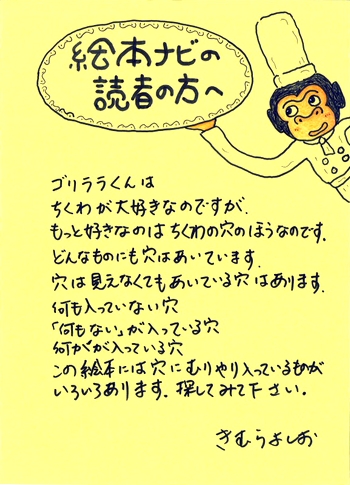 絵本ナビの
読者の方へ
ゴリララくんは
ちくわが大好きなのですが、
もっと好きなのはちくわの穴のほうなのです。
どんなものにも穴はあいています。
穴は見えなくてもあいている穴はあります。
何も入っていない穴
「何もない」が入っている穴
何かが入っている穴
この絵本には穴にむりやり入っているものが
いろいろあります。探してみて下さい。
きむらよしお